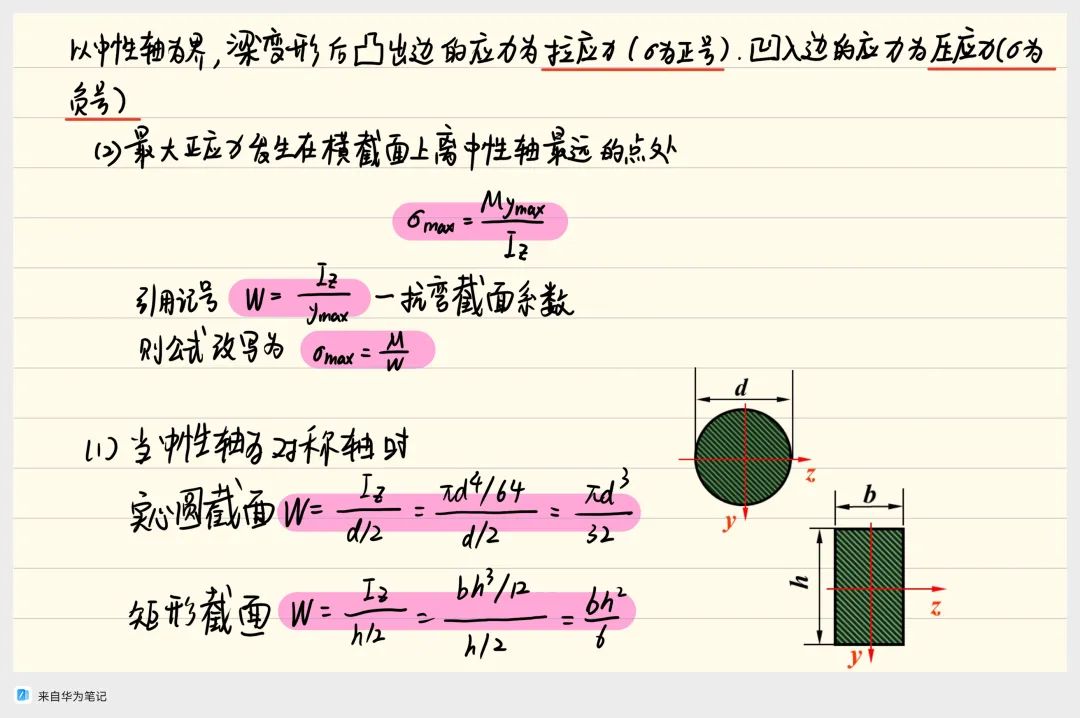 以中性轴为界,梁变形后凸出边的应力为拉应力(σ为正号).凹入边的应力为压应力(σ为
负号)
(2)最大正应力发生在横截面上离中性轴最远的点处
σmax = Mymax/Iz
引用记号 W = Iz/ymax —抗弯截面系数
则公式改写为 σmax = M/W
(1)当中性轴为对称轴时
实心圆截面 W = Iz/d/2 = πd⁴/64/d/2 = πd³/32
矩形截面 W = Iz/h/2 = bh³/12/h/2 = bh²/6
d
z
y
b
h
z
y
来自华为笔记